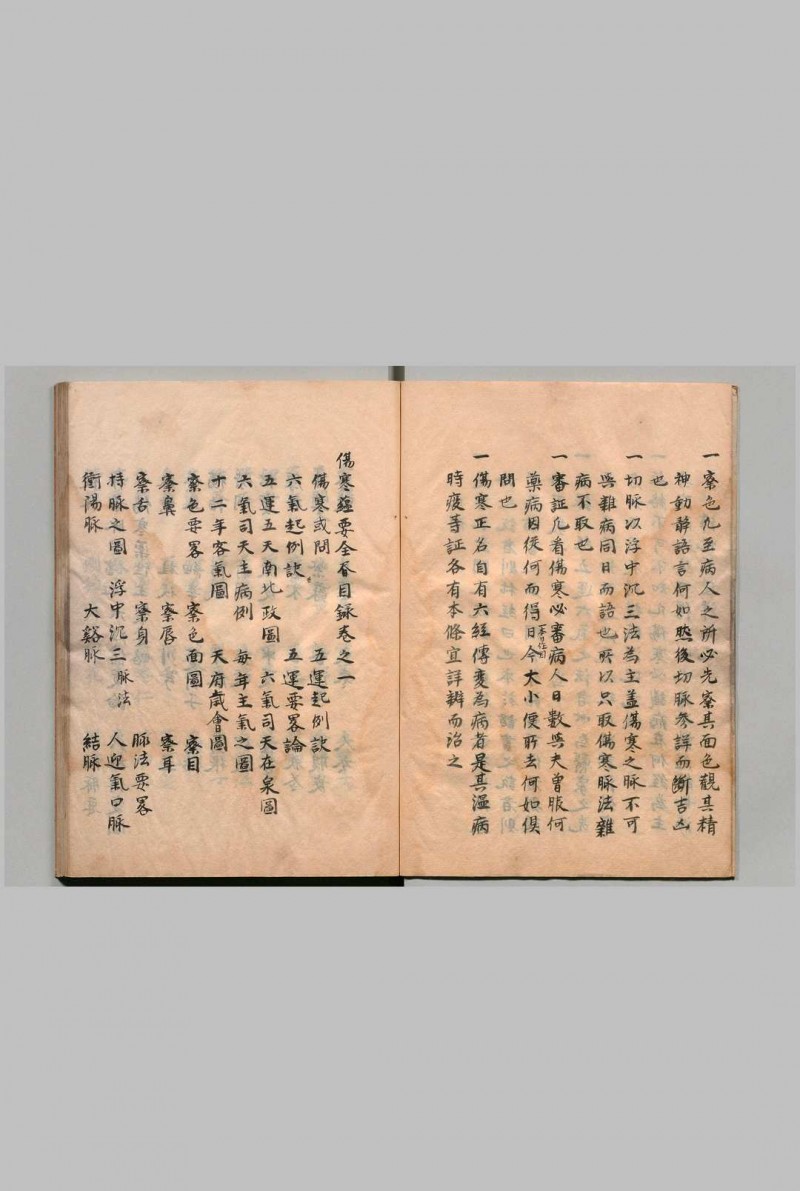 一察色凡至病人之所必先察其面色覩其精
神動靜語言何如然後切脉參詳而斷吉凶
也
一切脉以浮中沉三法為主盖傷寒之脉不可
與雜病同日而語也所以只取傷寒脉法雜
病不取也
一審証凡看傷寒必審病人日數與夫曾服何
藥病因從何而得日今大小便所去何如俱
問也
一傷寒正名自有六經傳変為病者是其温病
時疫等証各有本條宜詳辨而治之
傷寒蘊要全書目録卷之一
傷寒或問 五運起例訣
六氣起例訣 五運要畧論
五運五天南北政圖 六氣司天在泉圖
六氣司天主病例 每年主氣之圖
十二年客氣圖 天府歲會圖
察色要畧 察色面圖 察目
察鼻 察唇 察耳
察舌 察身 脉法要畧
持脉之圖 浮中沉三脉法 人迎氣口脉
衝陽脉 大谿脉 結脉